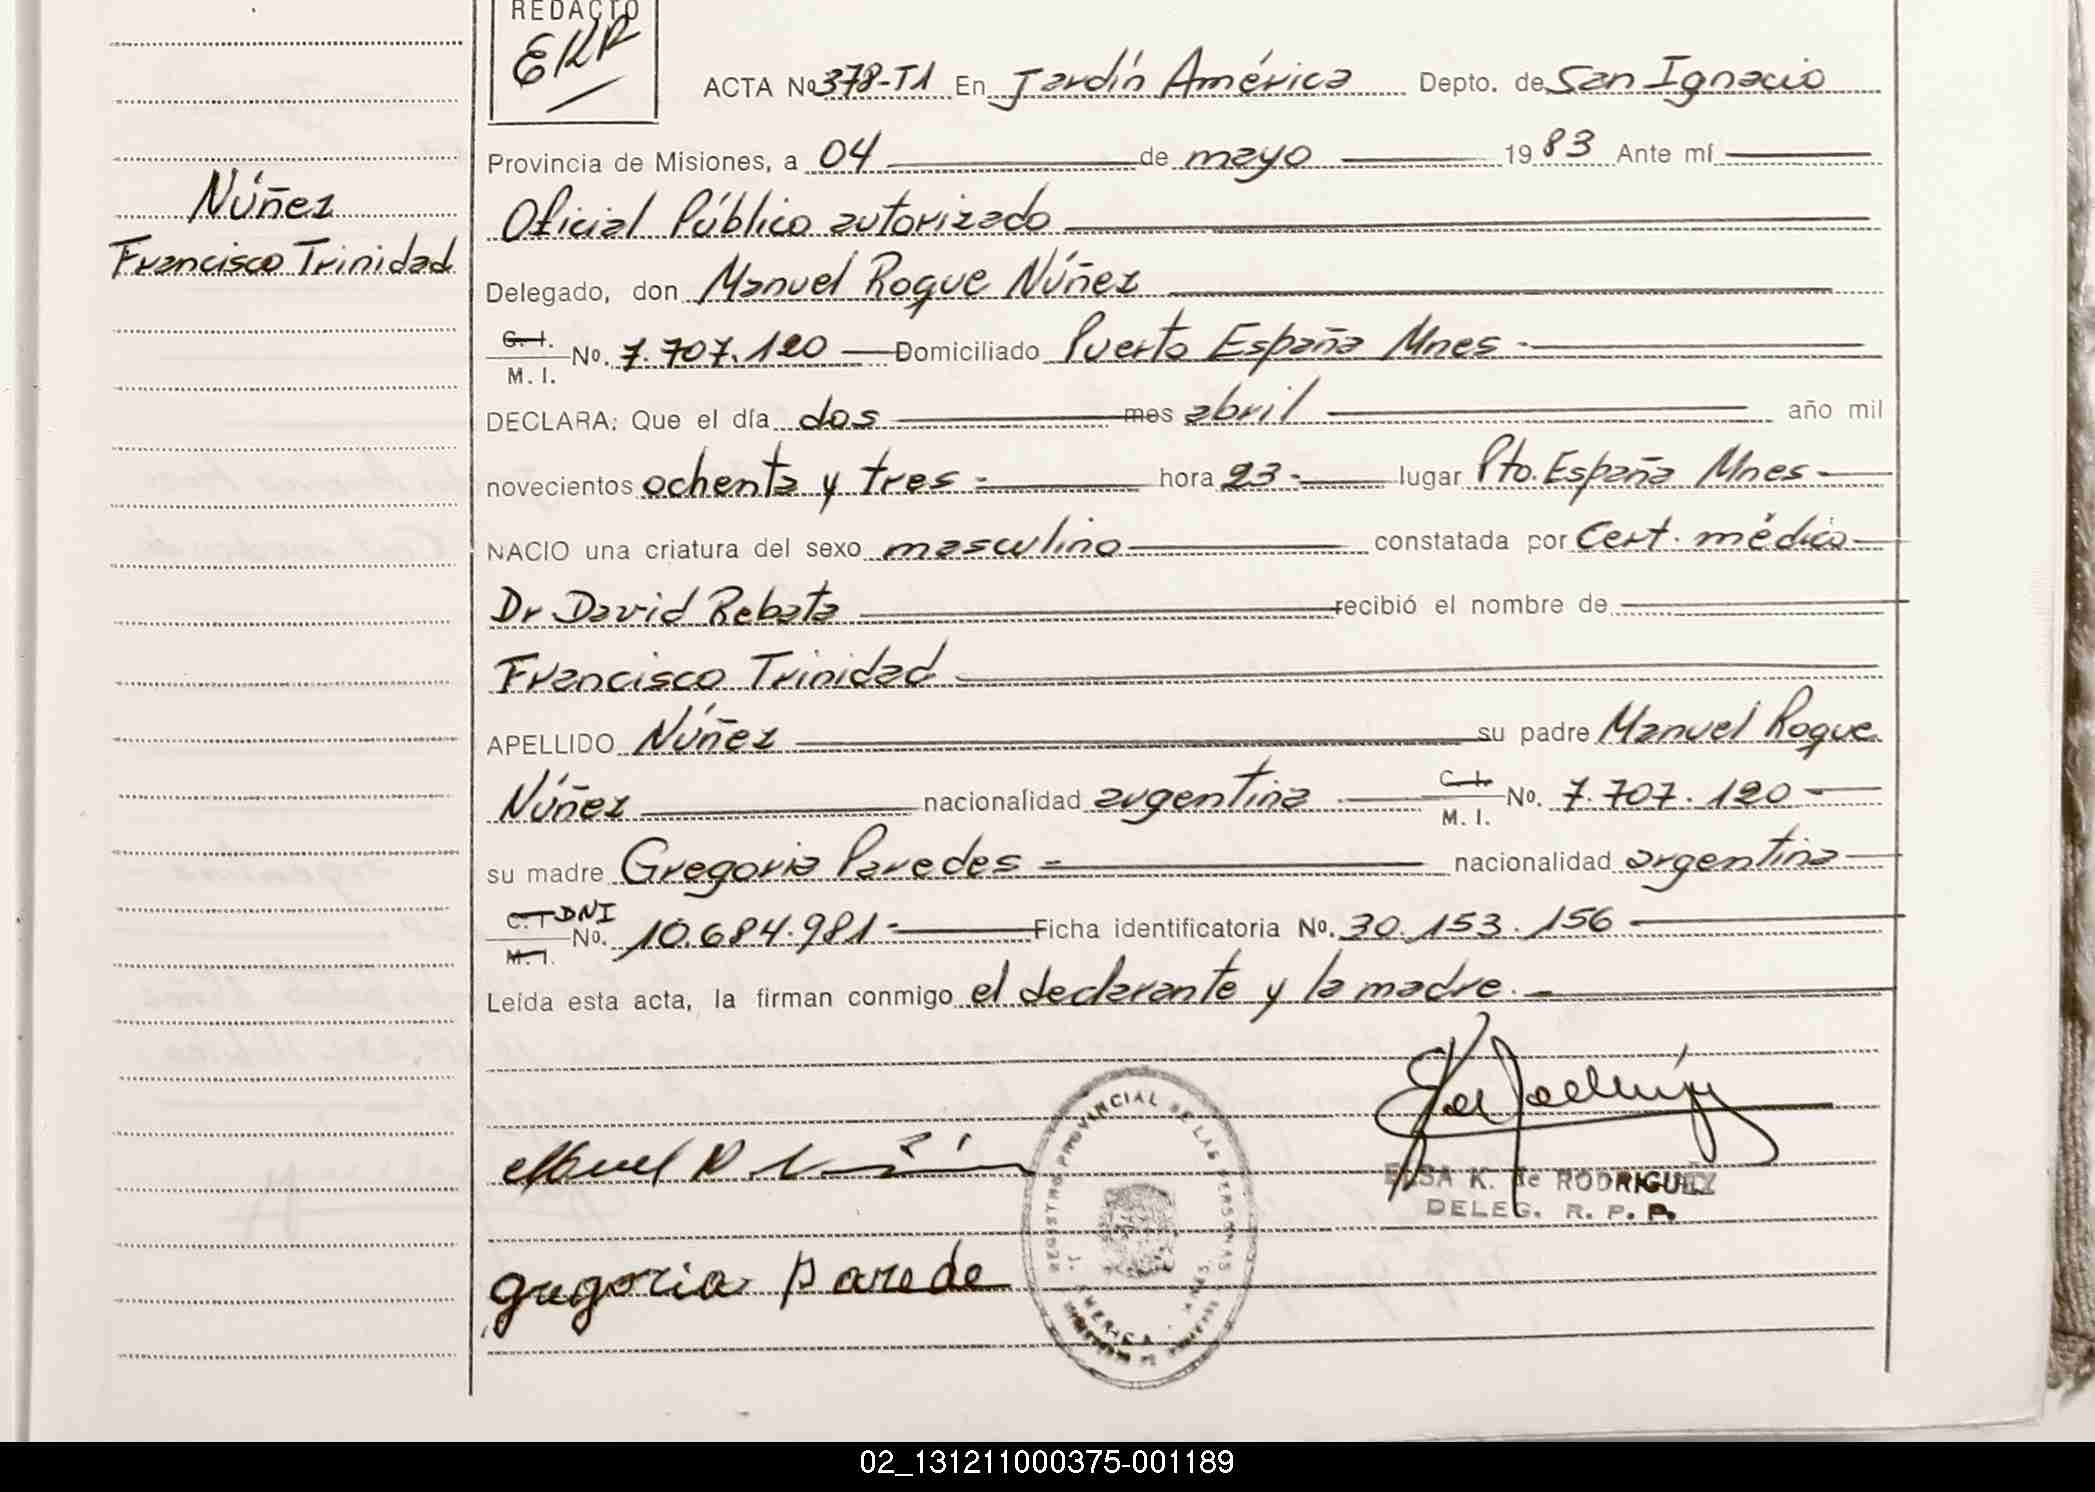 REDACTO
EKR
ACTA Nº 378-T1 En Jardín América Depto. de San Ignacio
Provincia de Misiones, a 04 de mayo 1983 Ante mí
Núñez
Oficial Público autorizado
Francisco Trinidad
Delegado, don Manuel Roque Núñez
C. I.
M. I. No. 7.707.120 Domiciliado Puerto España Mnes
DECLARA: Que el día dos mes abril año mil
novecientos ochenta y tres hora 23 lugar Pto. España Mnes
NACIO una criatura del sexo masculino constatada por Cert. médico
Dr David Rebata recibió el nombre de
Francisco Trinidad
APELLIDO Núñez su padre Manuel Roque
Núñez nacionalidad argentina C. I. M. I. No. 7.707.120
su madre Gregoria Paredes nacionalidad argentina
C. I. DNI
M. I. No. 10.684.981 Ficha identificatoria No. 30.153.156
Leída esta acta, la firman conmigo el declarante y la madre.
ELSA K. de RODRIGUEZ
DELEG. R. P. P.
gregoria parede
REGISTRO PROVINCIAL DE LAS PERSONAS
02_131211000375-001189